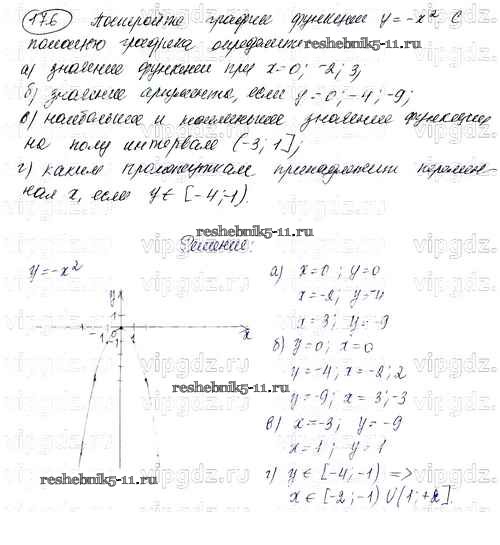 176 Постройте график функции y = -x² С
помощью графика определите:
reshebnik5-11.ru
а) значение функции при x=0; -2; 3;
б) значение аргумента, если y=0; -4; -9;
в) наибольшее и наименьшее значение функции
на полуинтервале (-3; 1];
г) каким промежуткам принадлежит перемен-
ная x, если y ∈ [-4; -1).
reshebnik5-11.ru
Решение:
y=-x²
y
1
-1 0 1 x
-1
reshebnik5-11.ru
reshebnik5-11.ru
а) x=0; y=0
x=-2; y=-4
x=3; y=-9
б) y=0; x=0
y=-4; x=-2; 2
y=-9; x=3; -3
в) x=-3; y=-9
x=1; y=1
г) y ∈ [-4; -1) =>
x ∈ [-2; -1) U (1; +2].
vipgdz.ru